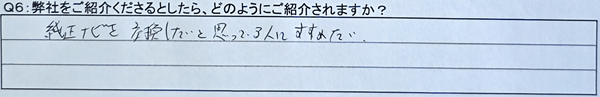 Q6：弊社をご紹介くださるとしたら、どのようにご紹介されますか？
純正ナビを交換したいと思っている人にすすめたい.